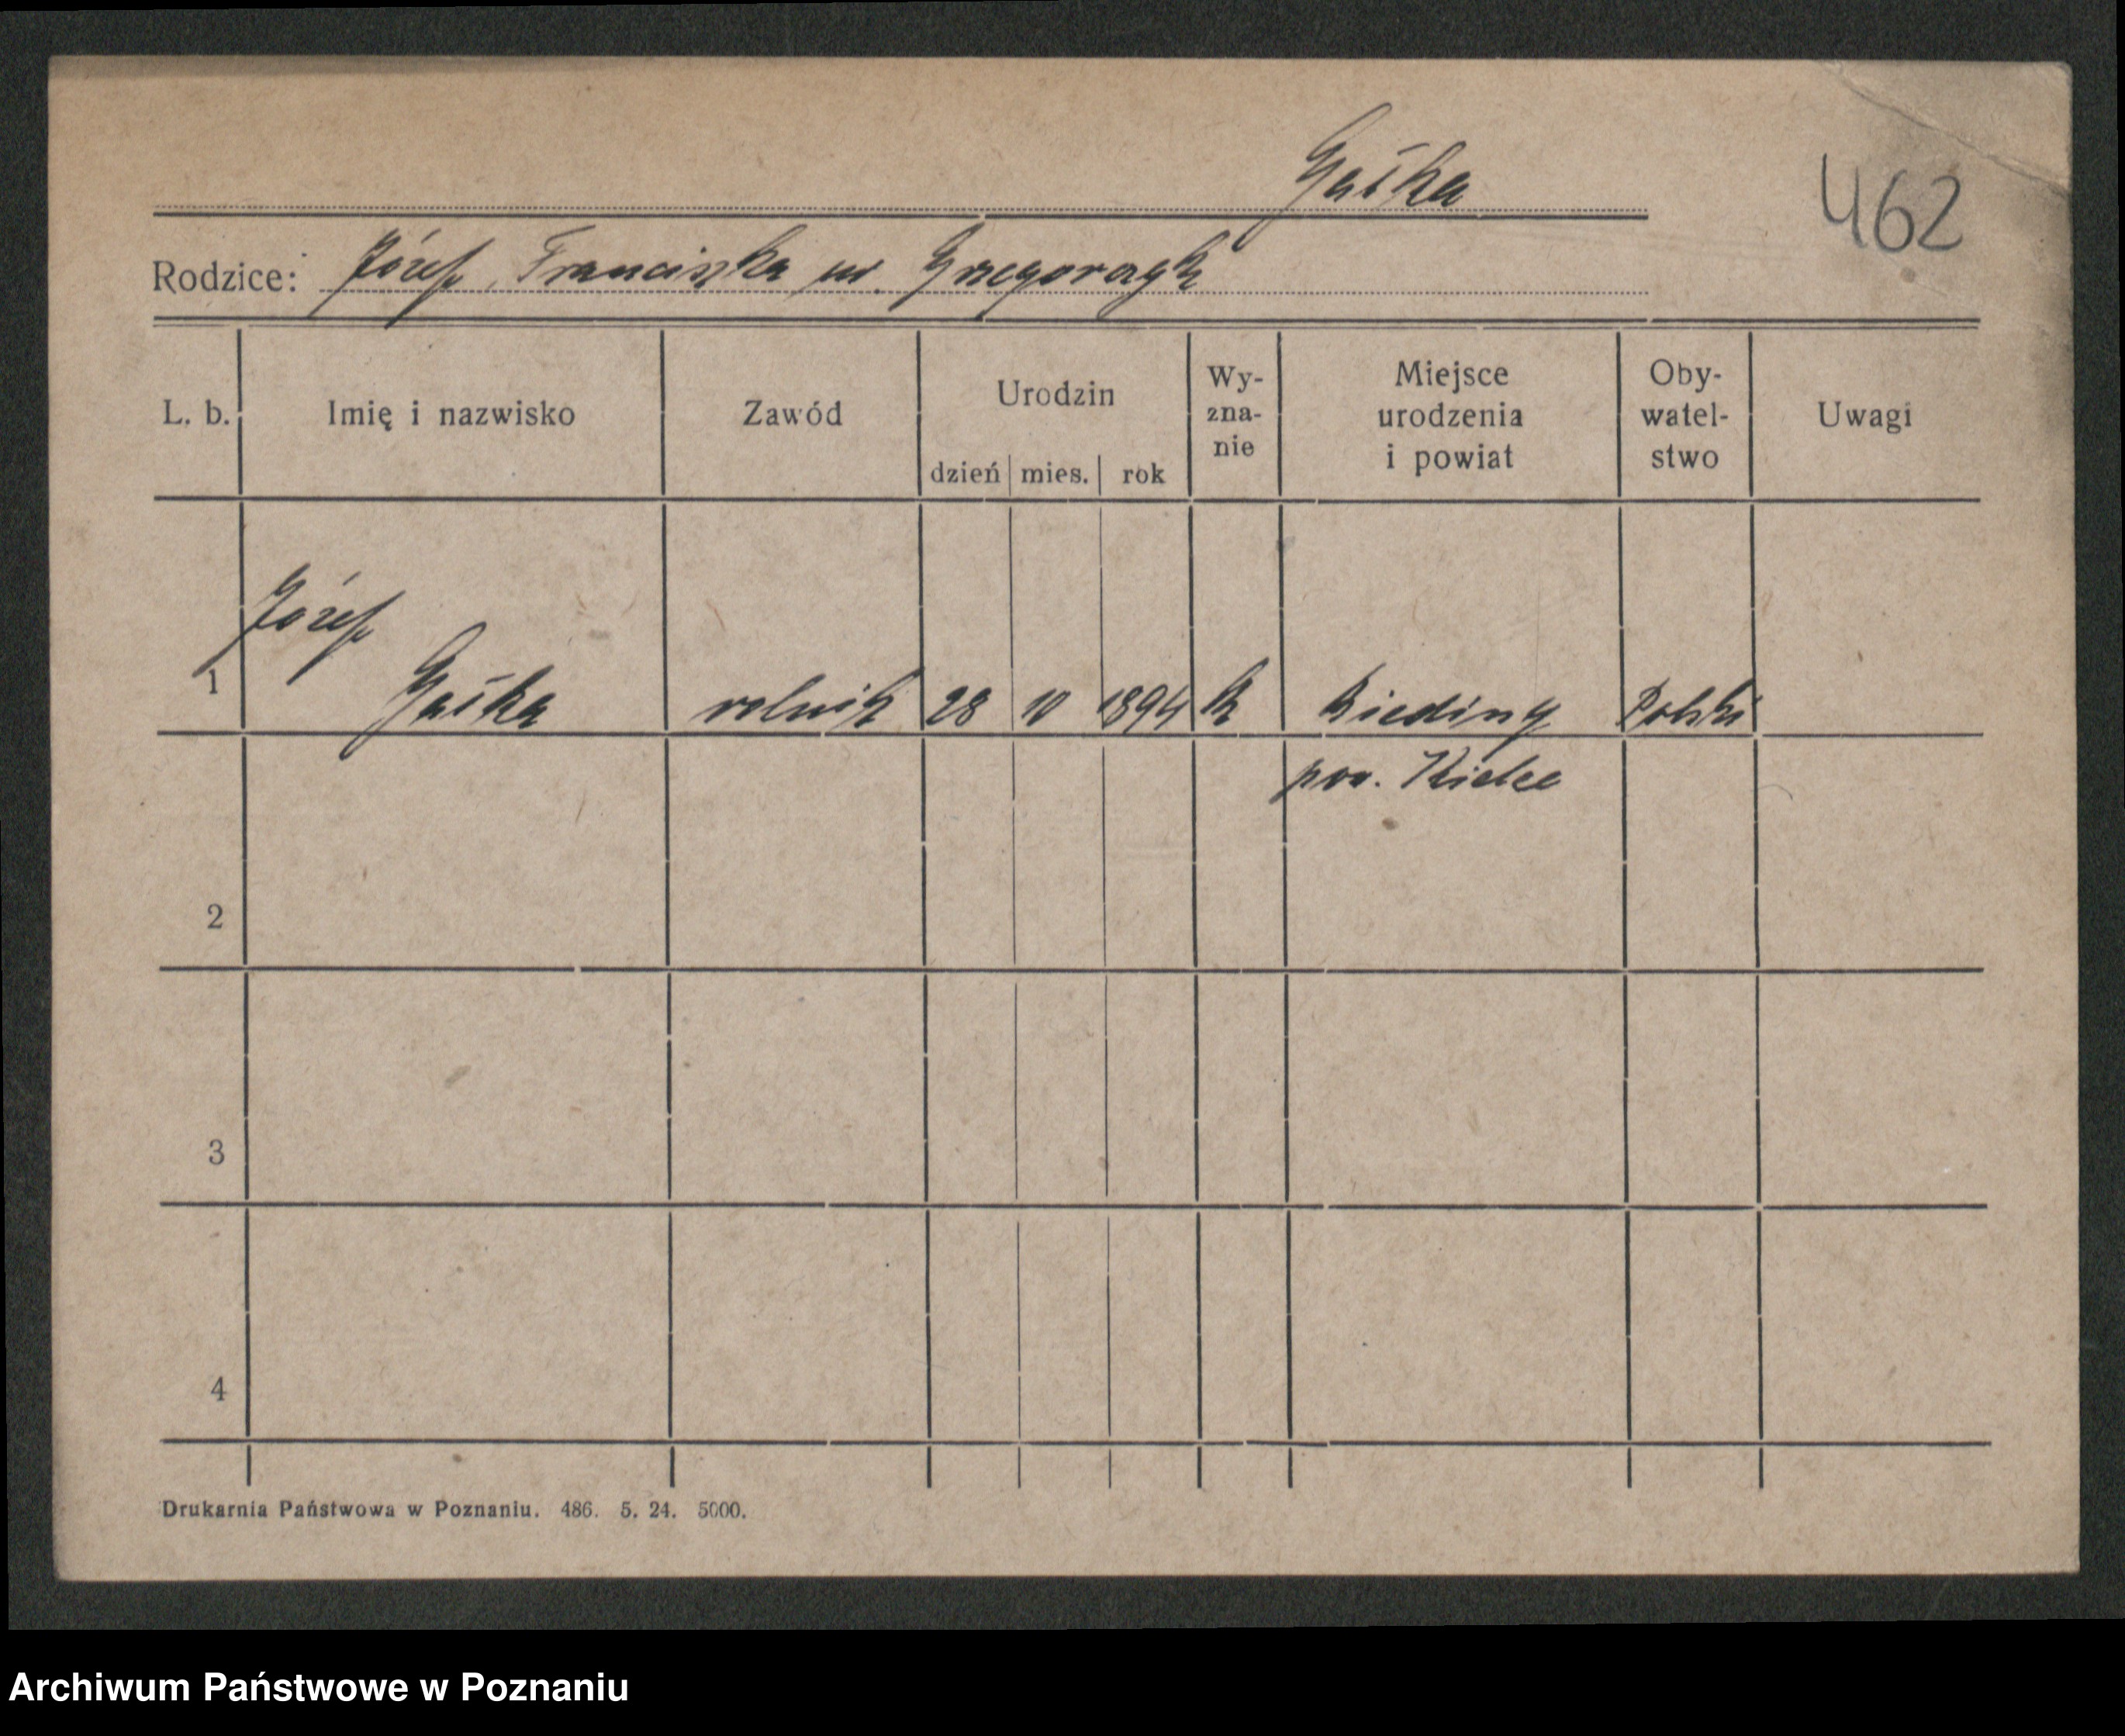 Gałka
462
Rodzice: Józef, Franciszka ur. Grzegorczyk
L. b.
Imię i nazwisko
Zawód
Urodzin
dzień mies. rok
Wy-
zna-
nie
Miejsce
urodzenia
i powiat
Oby-
watel-
stwo
Uwagi
Józef
1 Gałka rolnik 28 10 1894 k Biediny Polski
pow. Kielce
2
3
4
Drukarnia Państwowa w Poznaniu. 486. 5. 24. 5000.
Archiwum Państwowe w Poznaniu